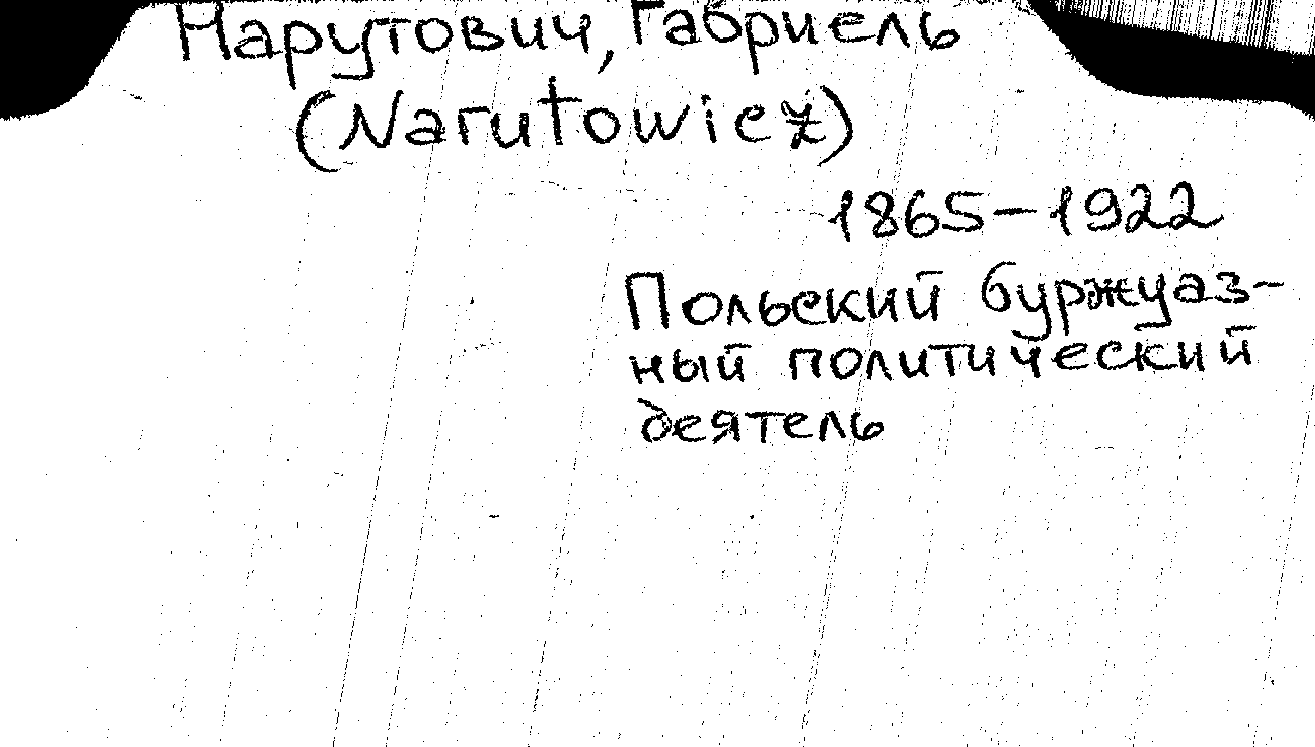 Нарутович, Габриель
(Narutowicz)
1865–1922
Польский буржуаз-
ный политический
деятель